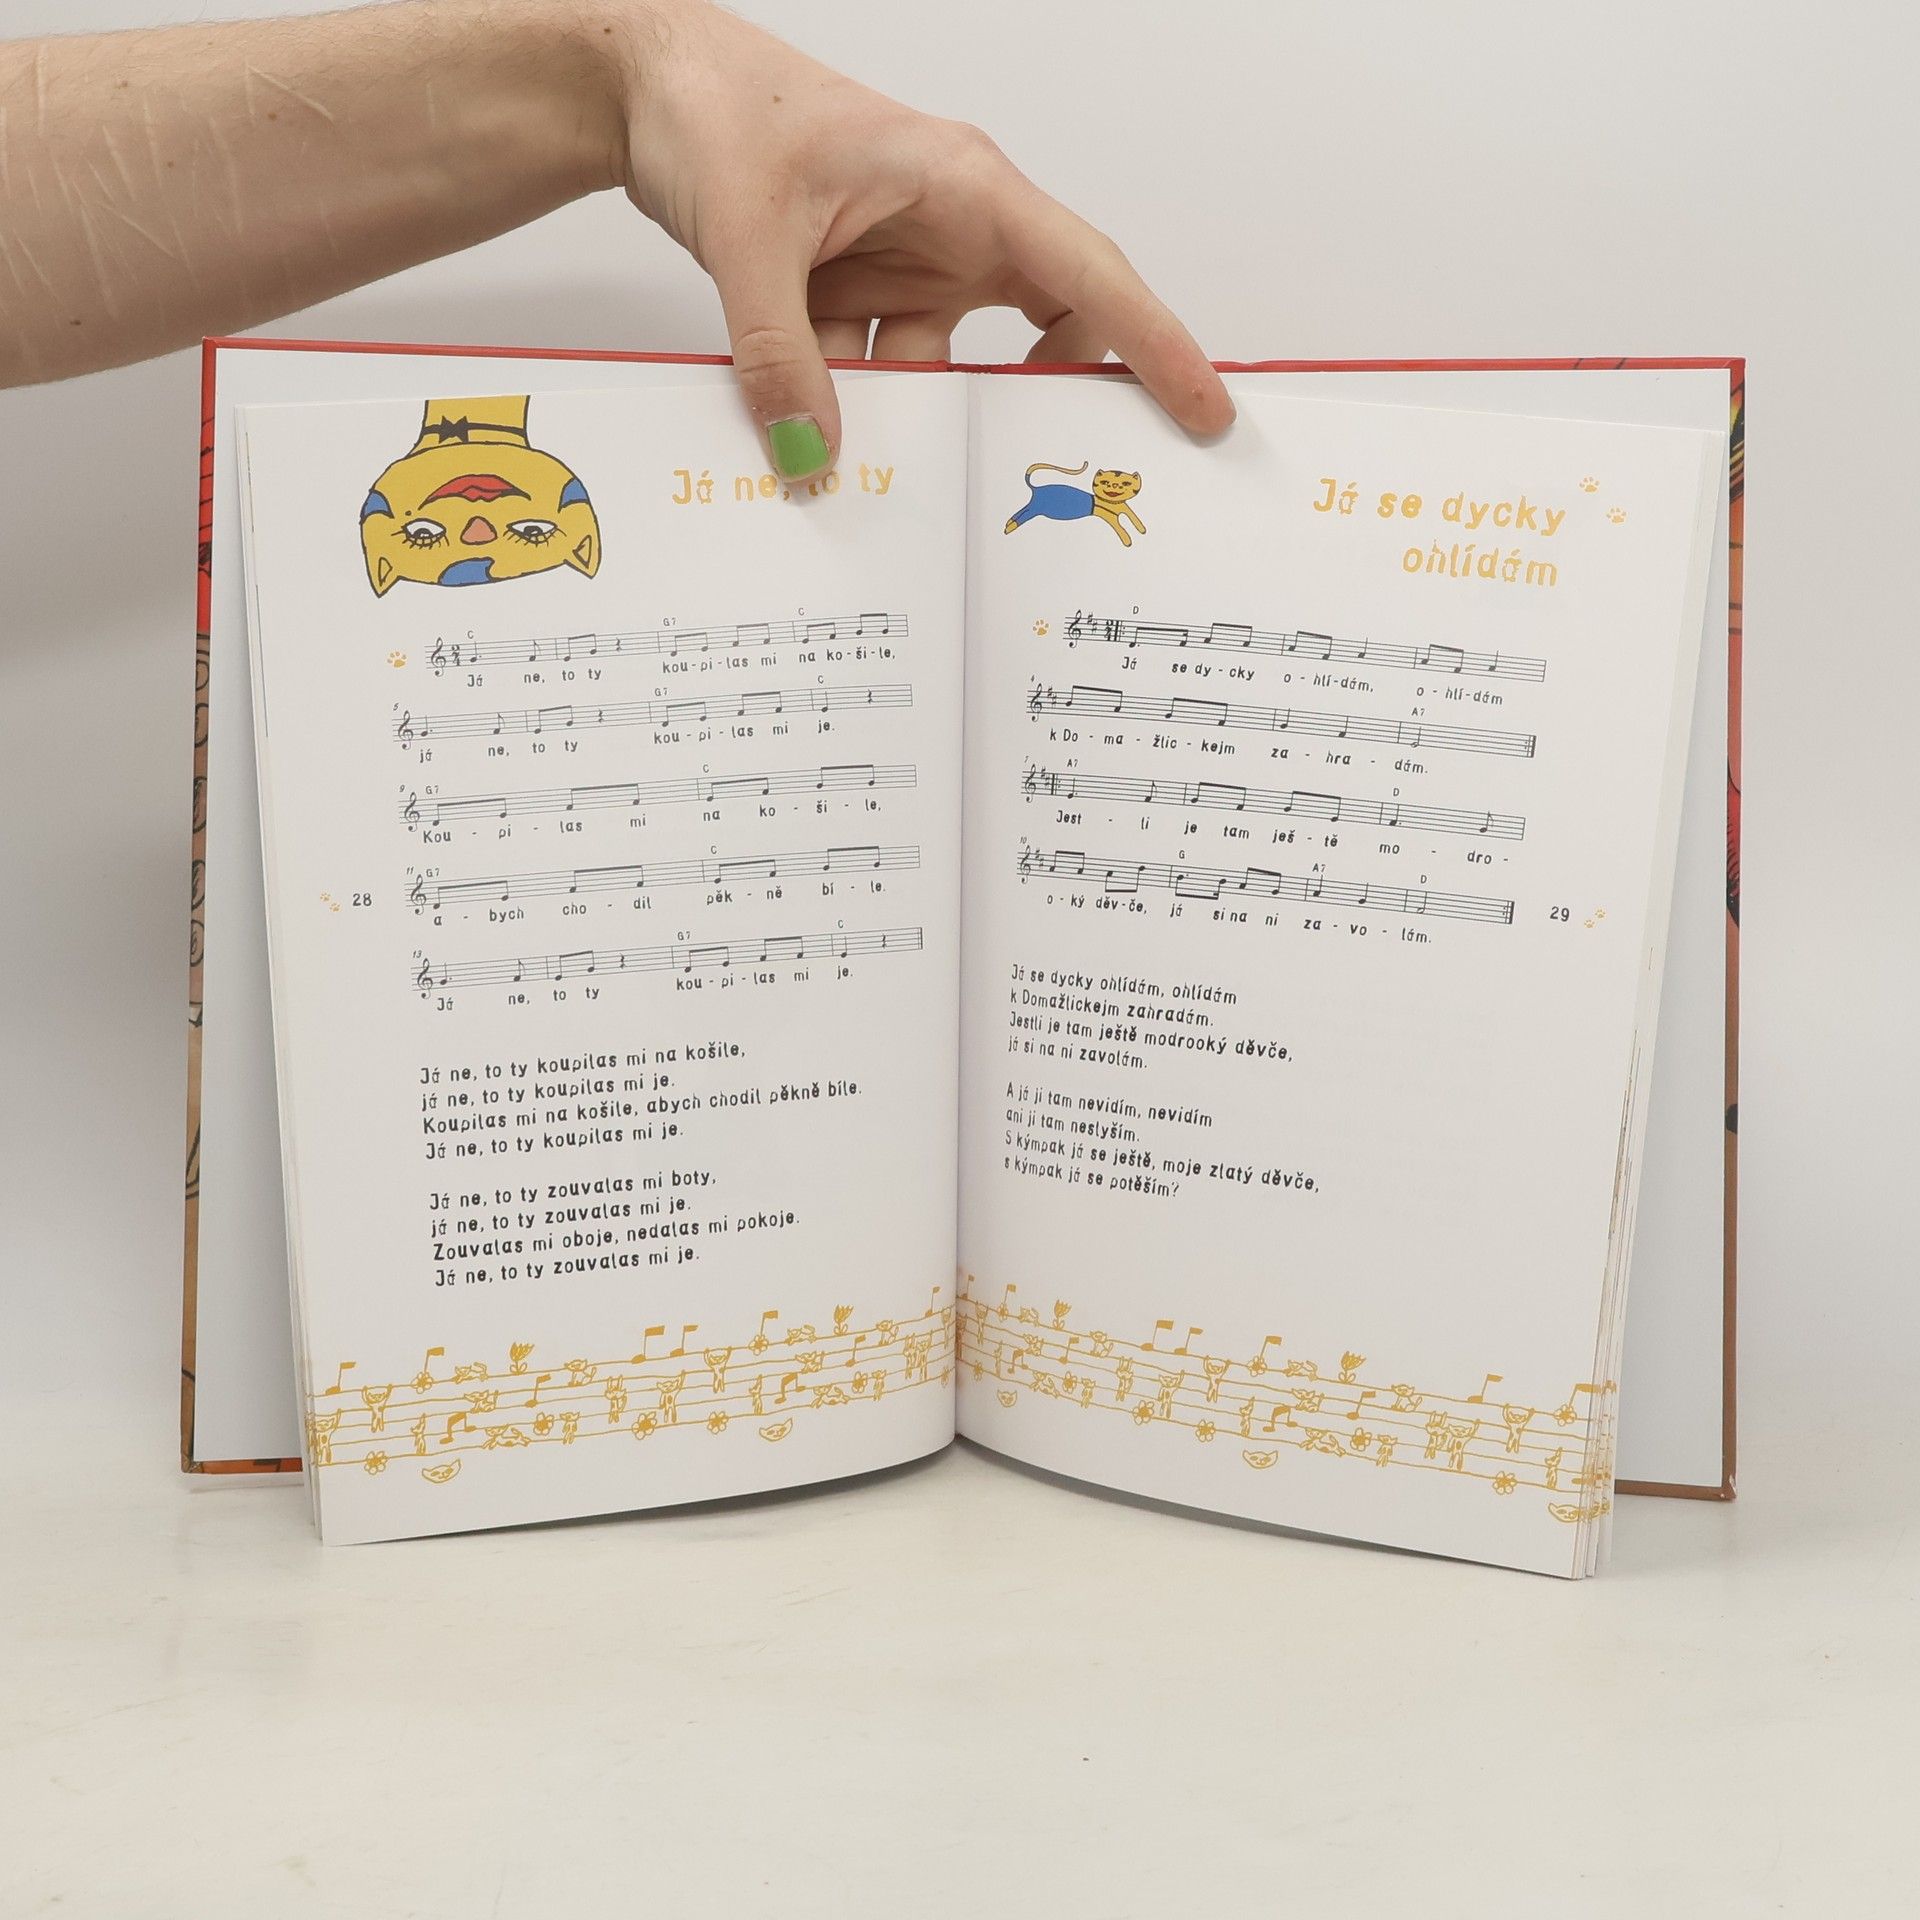 Já ne, to ty
C G7 C
Já ne, to ty kou-pi-las mi na ko-ši-le,
5 G7 C
já ne, to ty kou-pi-las mi je.
9 G7 C
Kou - pi - las mi na ko - ši - le,
11 G7 C
a - bych cho - dil pěk - ně bí - le.
13 G7 C
Já ne, to ty kou-pi-las mi je.
28
Já ne, to ty koupilas mi na košile,
já ne, to ty koupilas mi je.
Koupilas mi na košile, abych chodil pěkně bíle.
Já ne, to ty koupilas mi je.
Já ne, to ty zouvalas mi boty,
já ne, to ty zouvalas mi je.
Zouvalas mi oboje, nedalas mi pokoje.
Já ne, to ty zouvalas mi je.
Já se dycky
ohlídám
D
Já se dy-cky o-hlí-dám, o-hlí-dám
4 A7
k Do - ma - žlic - kejm za - hra - dám.
7 A7 D
Jest - li je tam ješ - tě mo - dro -
10 G A7 D
o-ký děv-če, já si na ni za-vo-lám.
29
Já se dycky ohlídám, ohlídám
k Domažlickejm zahradám.
Jestli je tam ještě modrooký děvče,
já si na ni zavolám.
A já ji tam nevidím, nevidím
ani ji tam neslyším.
S kýmpak já se ještě, moje zlatý děvče,
s kýmpak já se potěším?